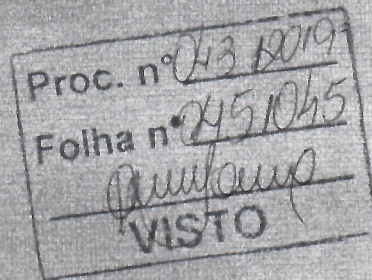 Proc. nº 043/2019
Folha nº 045/045
VISTO